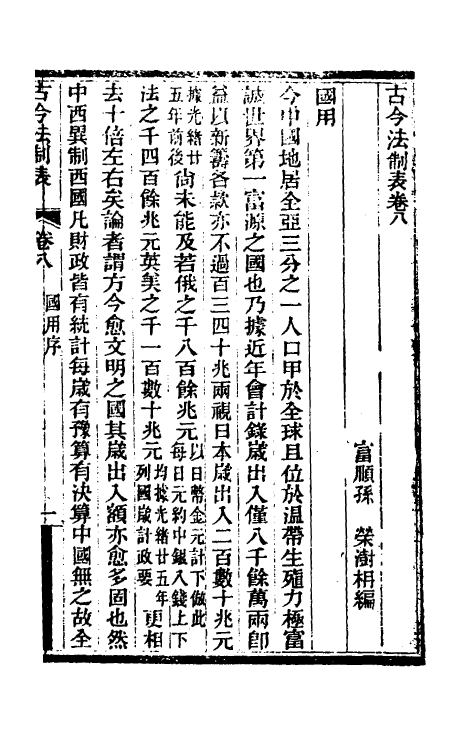 古今法制表卷八
富順孫榮澍枏編
國用
今中國地居全亞三分之一人口甲於全球且位於溫帶生殖力極富
誠世界第一富源之國也乃據近年會計錄歲出入僅八千餘萬兩卽
益以新籌各款亦不過百三四十兆兩視日本歲出入二百數十兆元
據光緒廿五年前後尙未能及若俄之千八百餘兆元以日幣金元計下倣此每日元約中銀八錢上下
法之千四百餘兆元英美之千一百數十兆元均據光緒廿五年列國歲計政要更相
去十倍左右矣論者謂方今愈文明之國其歲出入額亦愈多固也然
中西異制西國凡財政皆有統計每歲有豫算有決算中國無之故全
古今法制表 卷八 國用序 一